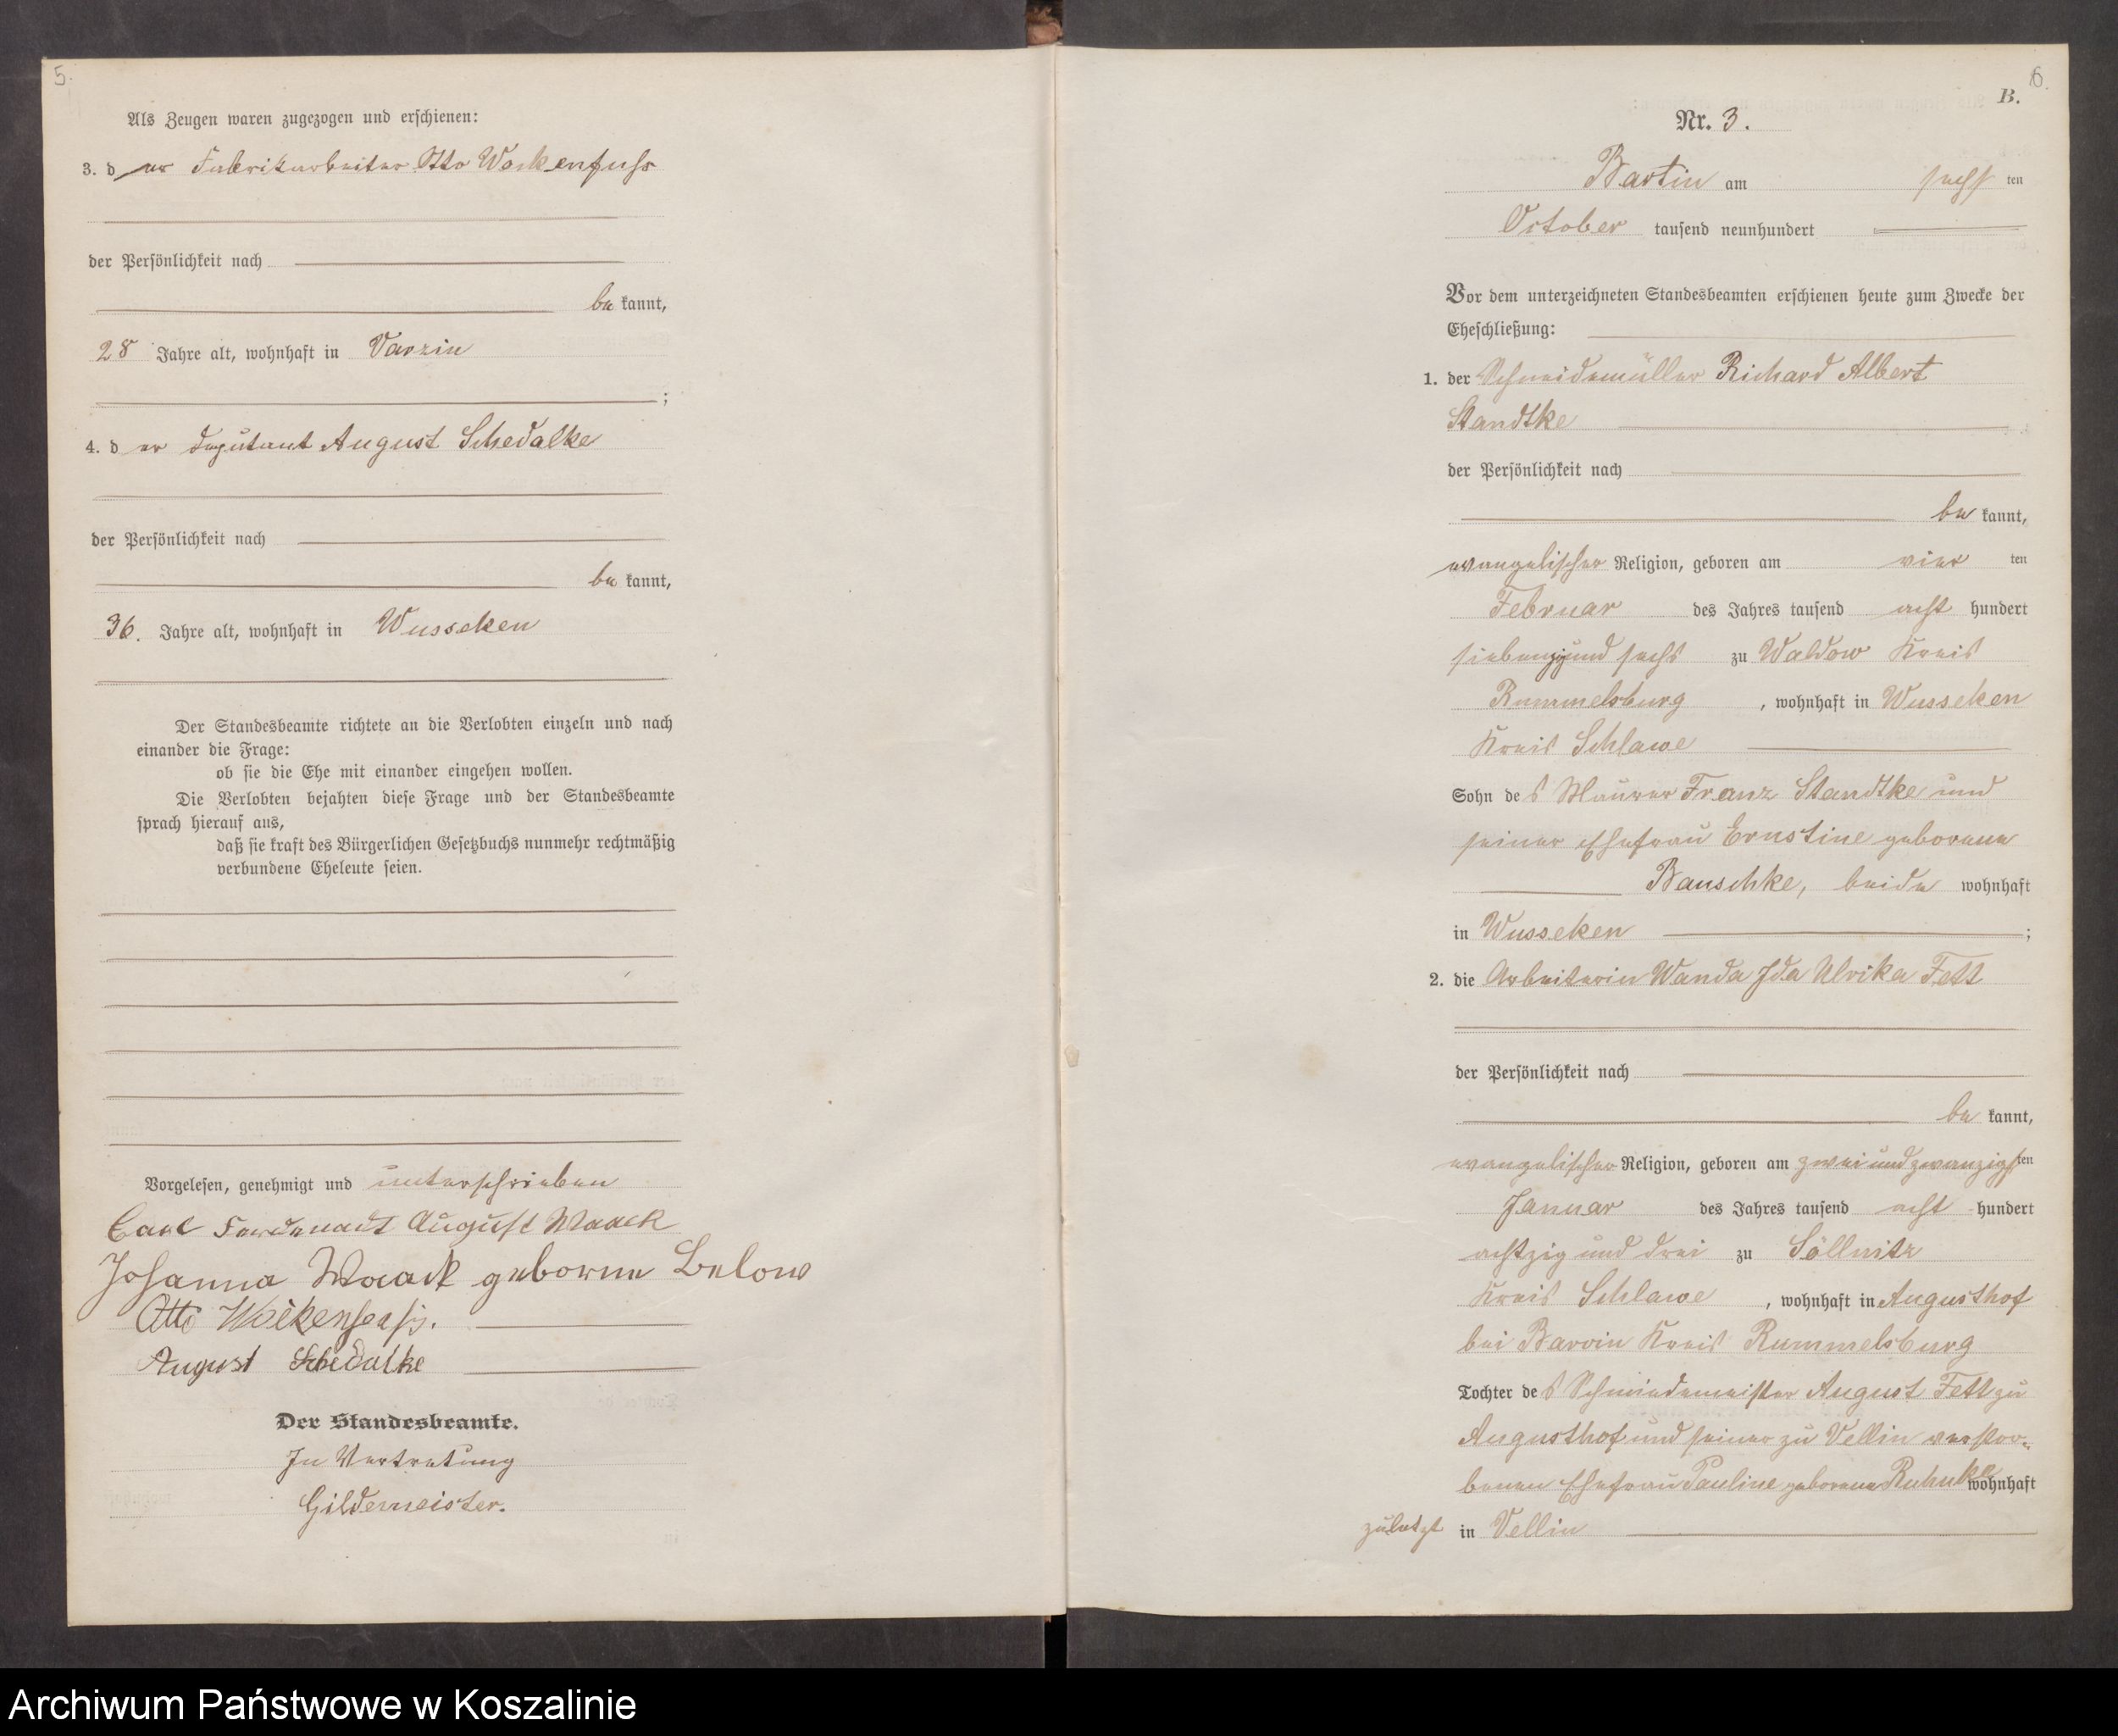 5.
Als Zeugen waren zugezogen und erschienen:
3. der Fabrikarbeiter Otto Wockenfuss
der Persönlichkeit nach
be kannt,
28 Jahre alt, wohnhaft in Varzin
;
4. der Deputant August Schedalke
der Persönlichkeit nach
be kannt,
36. Jahre alt, wohnhaft in Wusseken
Der Standesbeamte richtete an die Verlobten einzeln und nach
einander die Frage:
ob sie die Ehe mit einander eingehen wollen.
Die Verlobten bejahten diese Frage und der Standesbeamte
sprach hierauf aus,
daß sie kraft des Bürgerlichen Gesetzbuchs nunmehr rechtmäßig
verbundene Eheleute seien.
Vorgelesen, genehmigt und unterschrieben
Carl August Waack
Johanna Waack geborne Below
Otto
August Schedalke
Der Standesbeamte.
In Vertretung
Gildemeister.
6.
B.
Nr. 3.
Bartin am sechsten
October tausend neunhundert
Vor dem unterzeichneten Standesbeamten erschienen heute zum Zwecke der
Eheschließung:
1. der Schneidemüller Richard Albert
Standtke
der Persönlichkeit nach
be kannt,
evangelischer Religion, geboren am vier ten
Februar des Jahres tausend acht hundert
siebenzig und sechs zu Waldow Kreis
Rummelsburg, wohnhaft in Wusseken
Kreis Schlawe
Sohn des Maurer Franz Standtke und
seiner Ehefrau Ernstine geborene
Bauschke, beide wohnhaft
in Wusseken ;
2. die Arbeiterin Wanda Ida Ulrika Fett
der Persönlichkeit nach
be kannt,
evangelischer Religion, geboren am zwei und zwanzigsten
Januar des Jahres tausend acht hundert
achtzig und drei zu Söllnitz
Kreis Schlawe, wohnhaft in Augusthof
bei Barvin Kreis Rummelsburg
Tochter des Schmiedemeister August Fett zu
Augusthof und seiner zu Vellin verstor-
benen Ehefrau Pauline geborene Ruhnke wohnhaft
zuletzt in Vellin
Archiwum Państwowe w Koszalinie